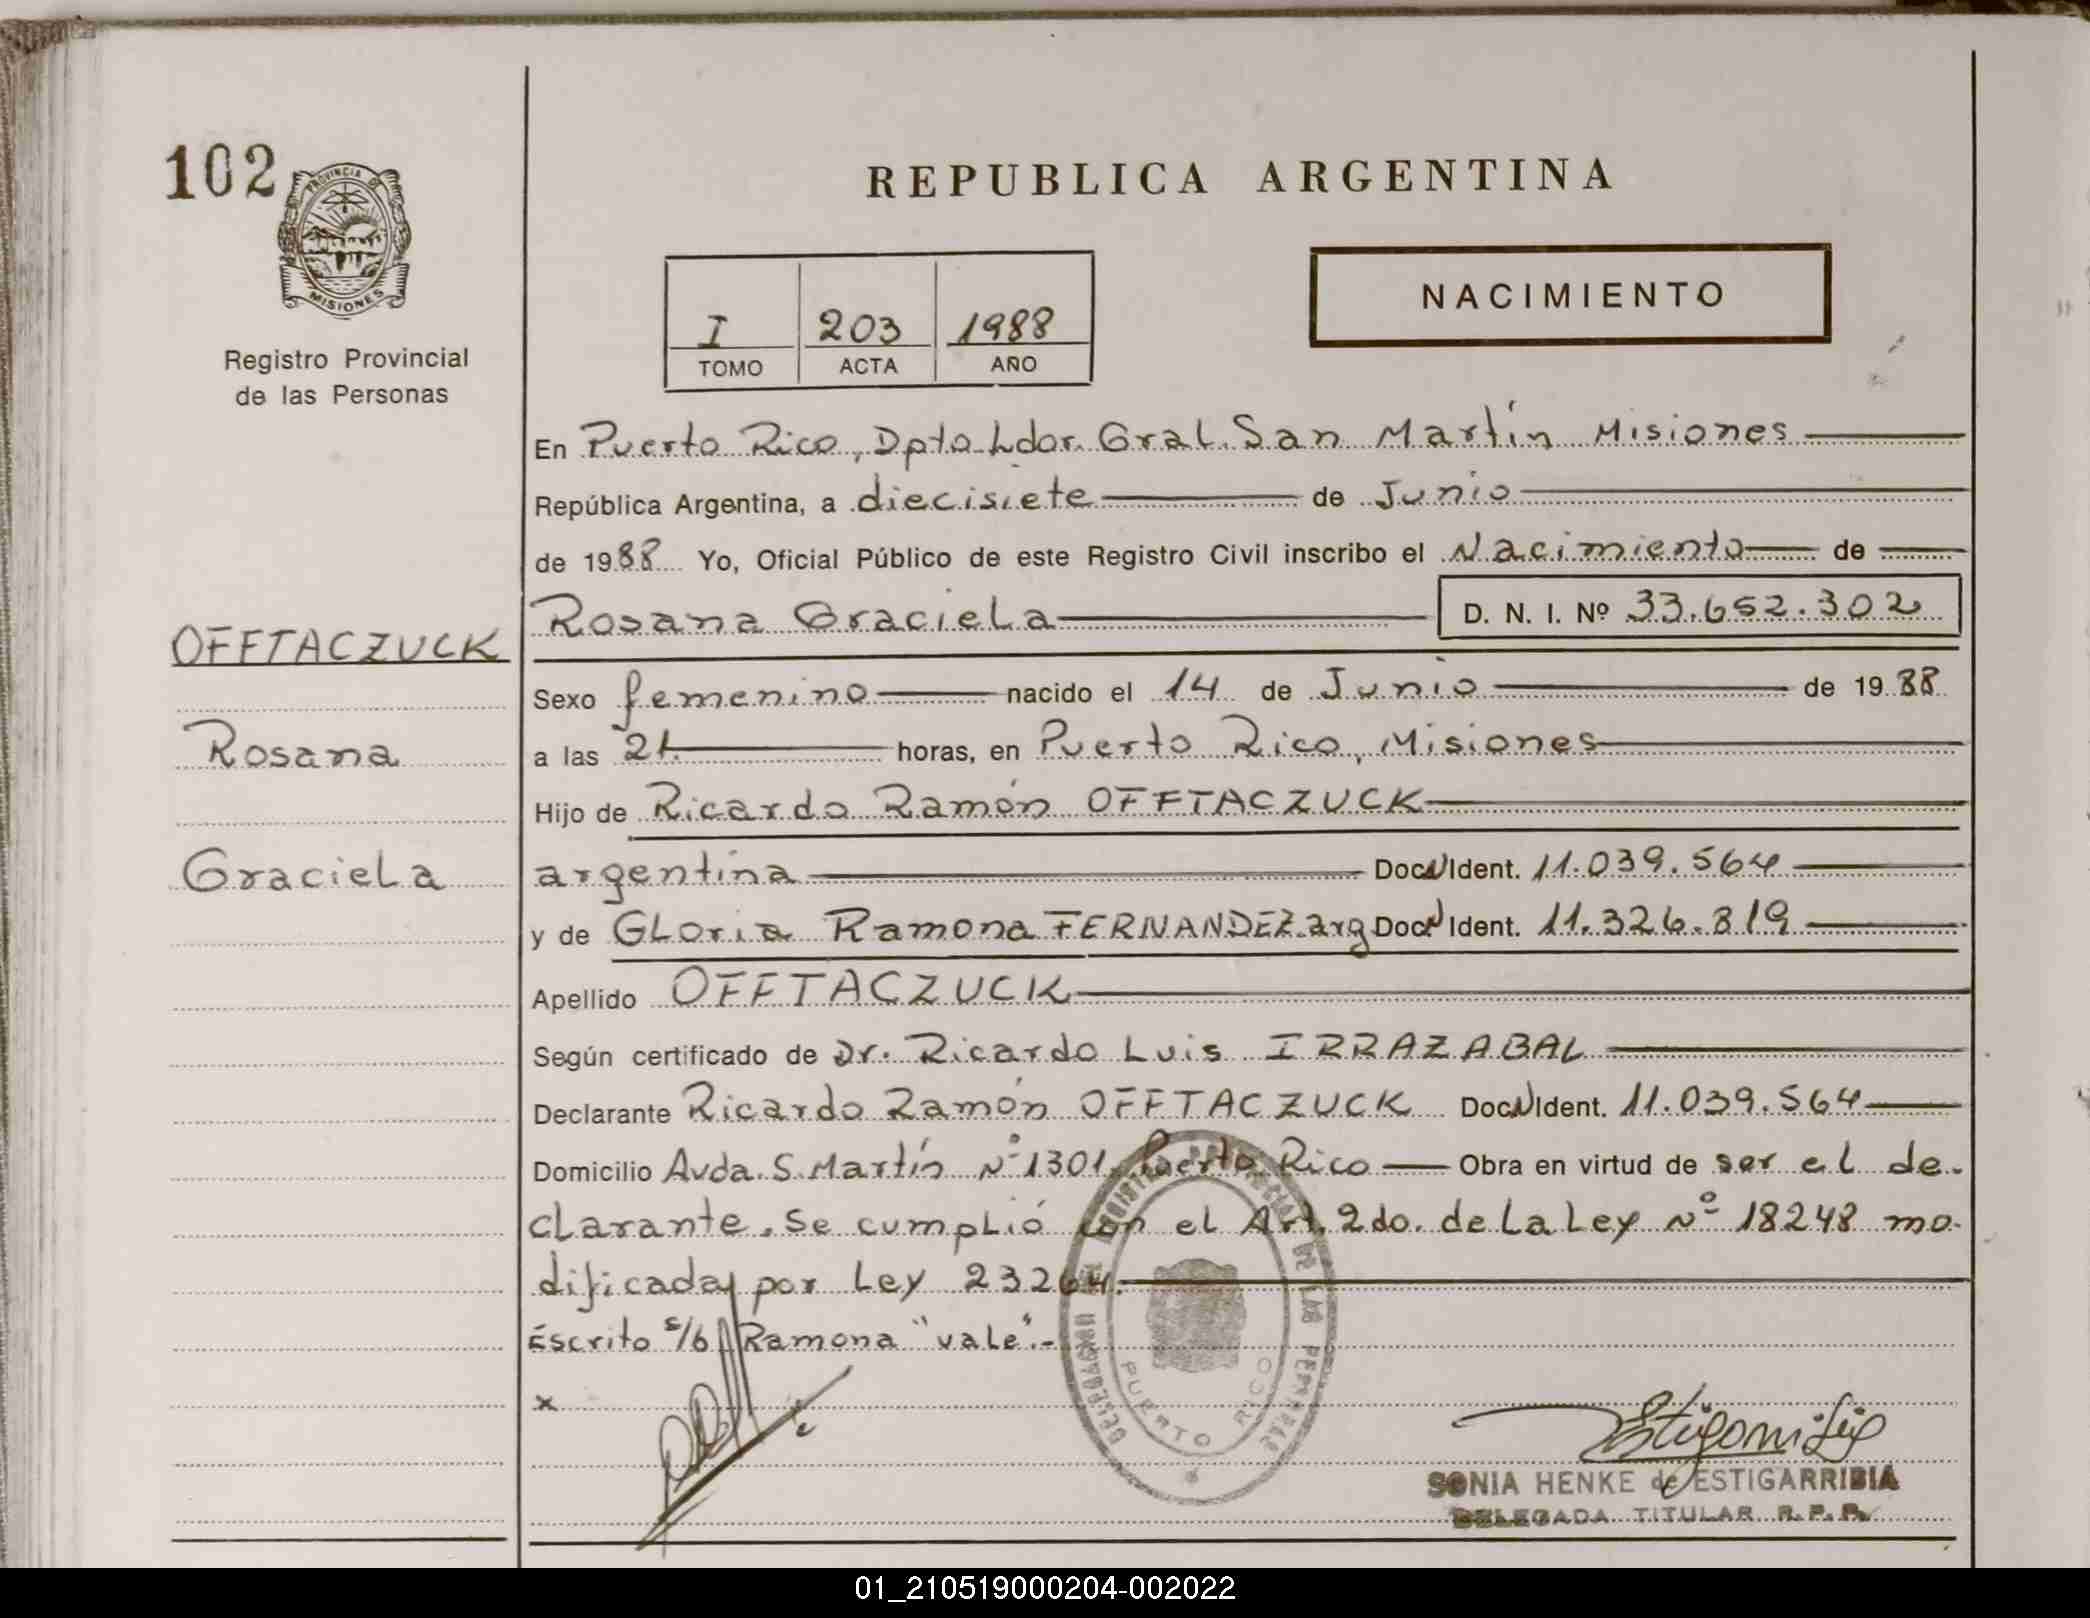 102
PROVINCIA DE
MISIONES
Registro Provincial
de las Personas
OFFTACZUCK
Rosana
Graciela
REPUBLICA ARGENTINA
I 203 1988
TOMO ACTA AÑO
NACIMIENTO
En Puerto Rico, Dpto. Ldor. Gral. San Martín Misiones
República Argentina, a diecisiete de Junio
de 1988 Yo, Oficial Público de este Registro Civil inscribo el Nacimiento de
Rosana Graciela D. N. I. Nº 33.652.302
Sexo femenino nacido el 14 de Junio de 1988
a las 21. horas, en Puerto Rico, Misiones
Hijo de Ricardo Ramón OFFTACZUCK
argentina Doc. N Ident. 11.039.564
y de Gloria Ramona FERNANDEZ arg Doc. N Ident. 11.326.819
Apellido OFFTACZUCK
Según certificado de Dr. Ricardo Luis IRRAZABAL
Declarante Ricardo Ramón OFFTACZUCK Doc. N Ident. 11.039.564
Domicilio Avda. S. Martín Nº 1301, Puerto Rico Obra en virtud de ser el de-
clarante. Se cumplió con el Art. 2do. de la Ley Nº 18248 mo-
dificada por Ley 23264.
Escrito s/b Ramona "vale".-
x
DELEGACION DEL REGISTRO PROVINCIAL DE LAS PERSONAS
PUERTO RICO
SONIA HENKE de ESTIGARRIBIA
DELEGADA TITULAR R. P. P.
01_210519000204-002022